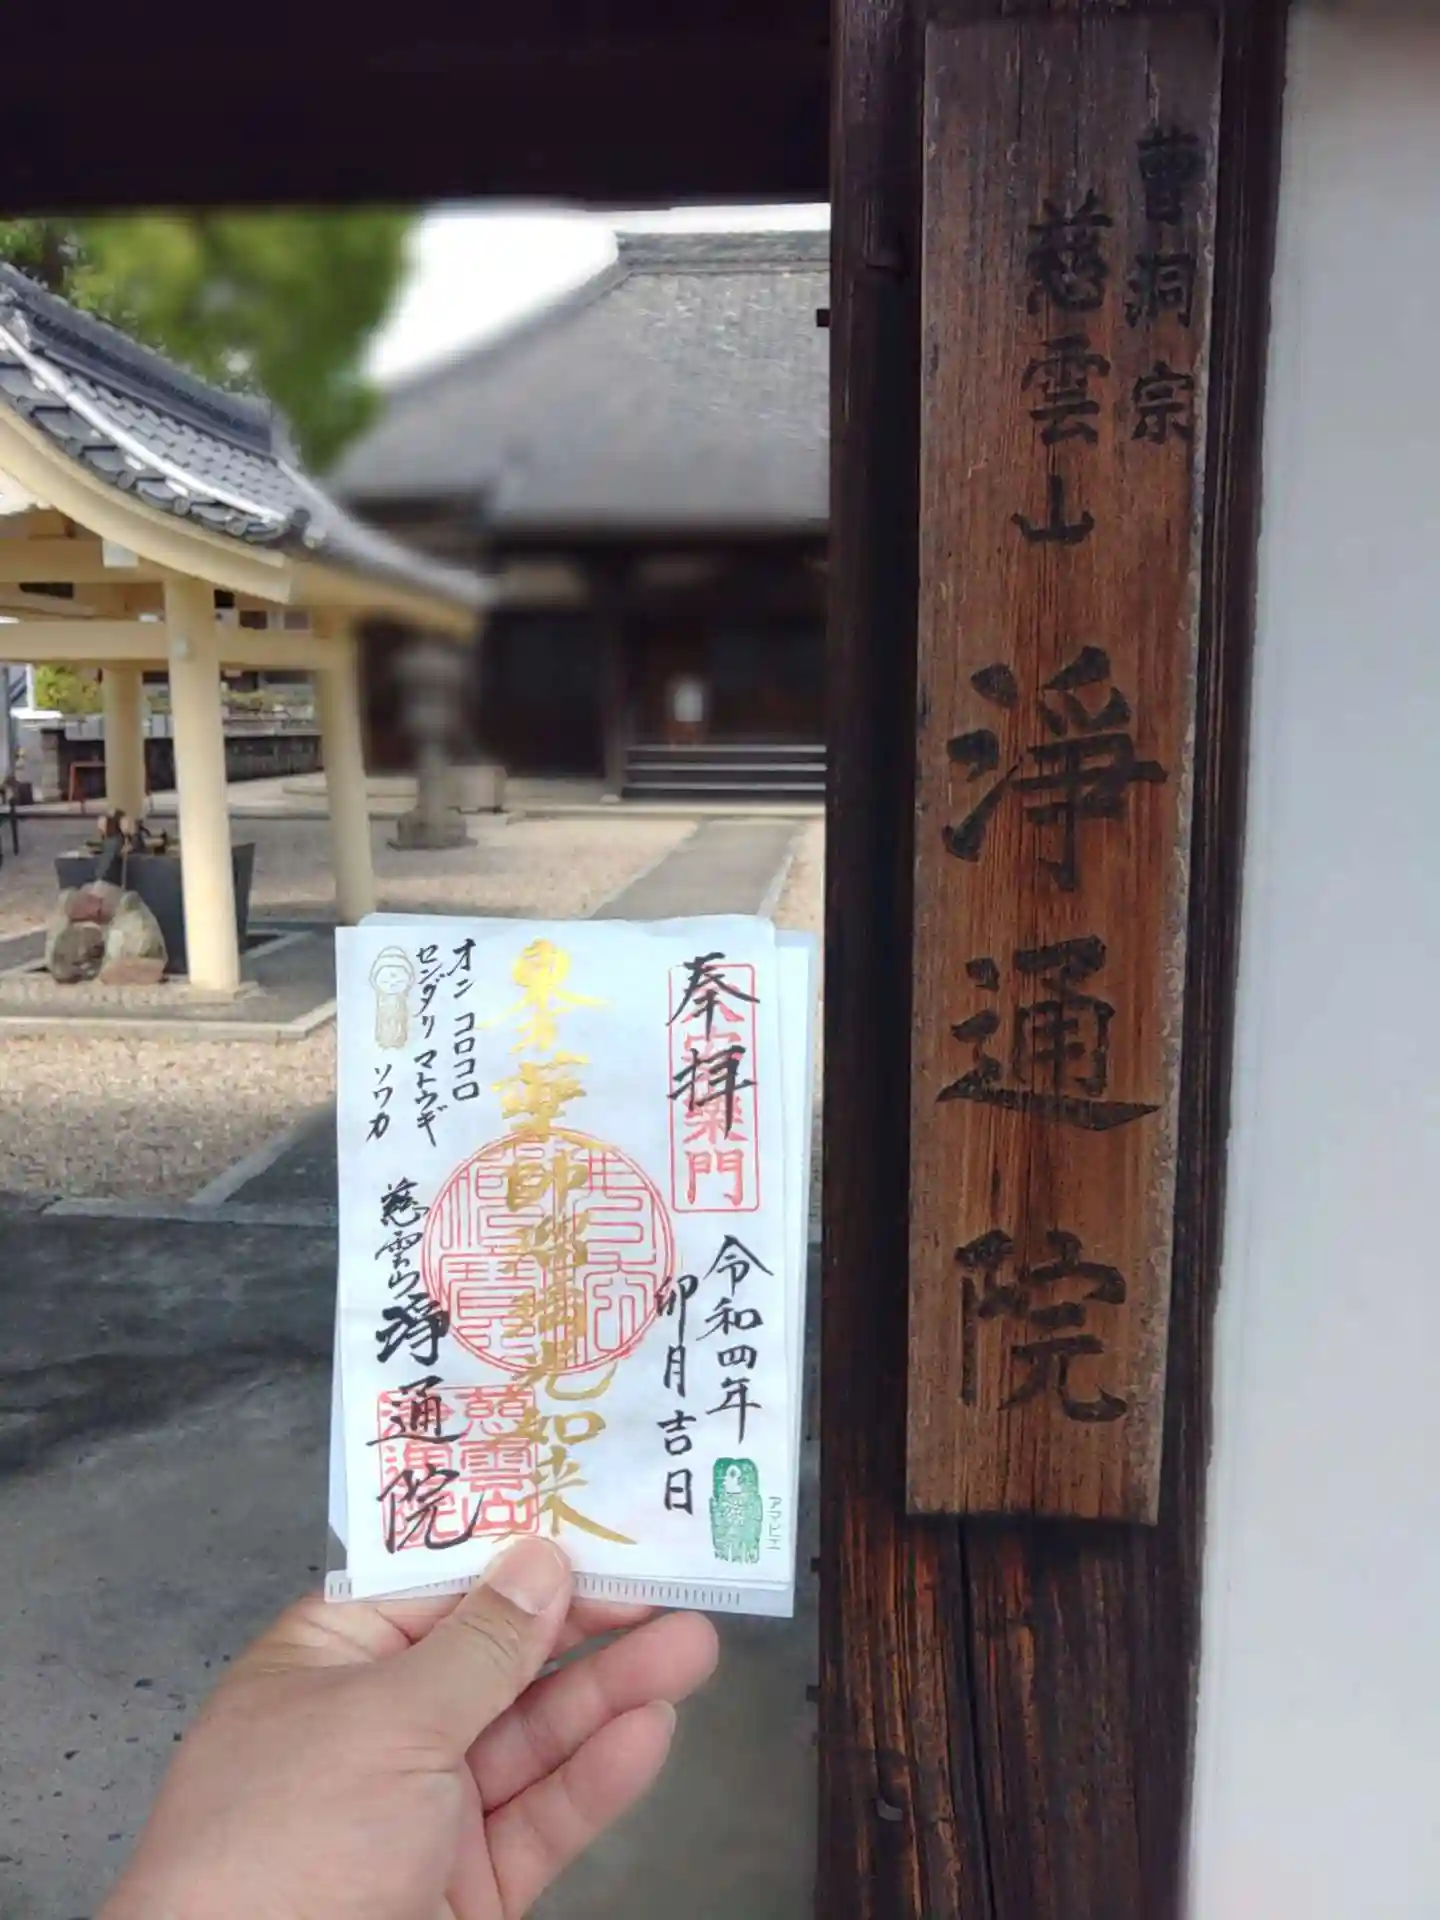 曹洞宗
慈雲山
淨通院
奉拝
令和四年
卯月吉日
東方薬師瑠璃光如来
オン コロコロ
センダリ マトウギ
ソワカ
慈雲山 浄通院
慈雲山
アマビエ